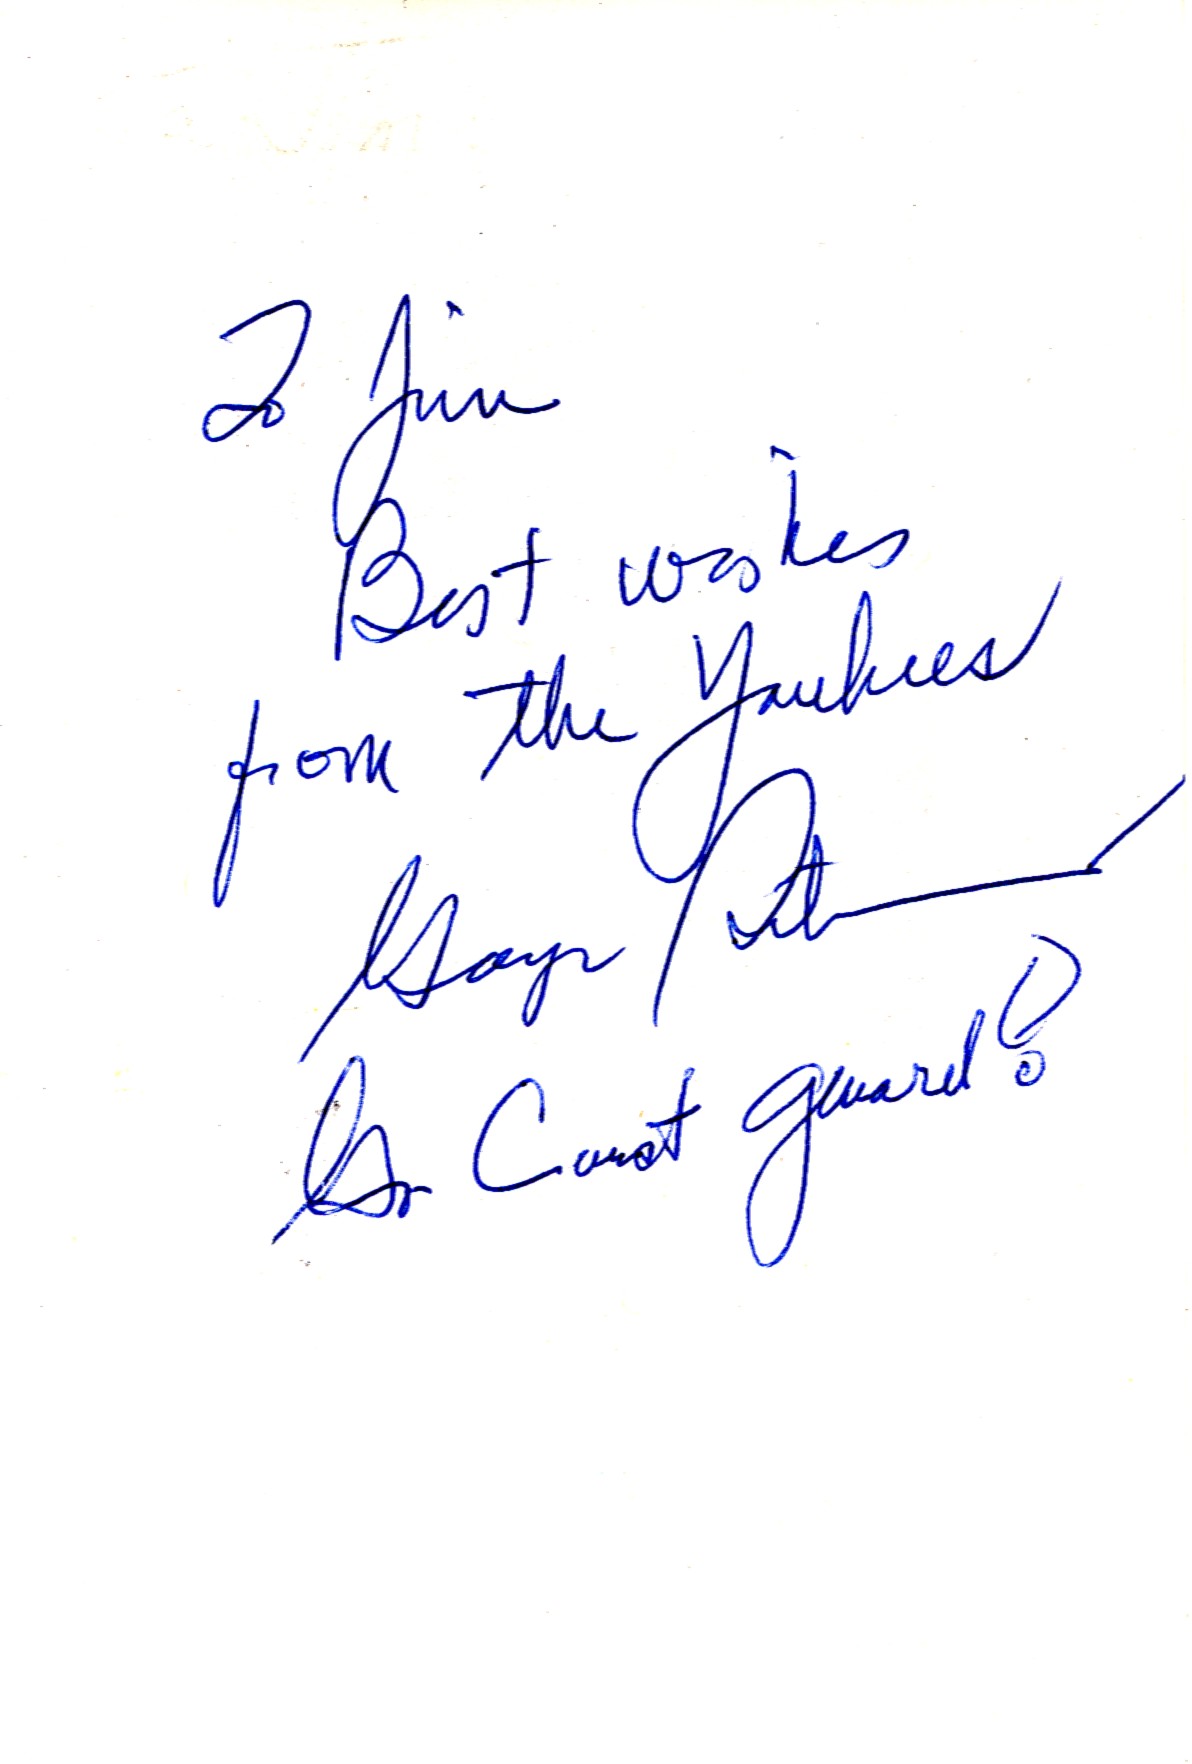 To Jim
Best wishes
from the Yankees
Go Coast guard!